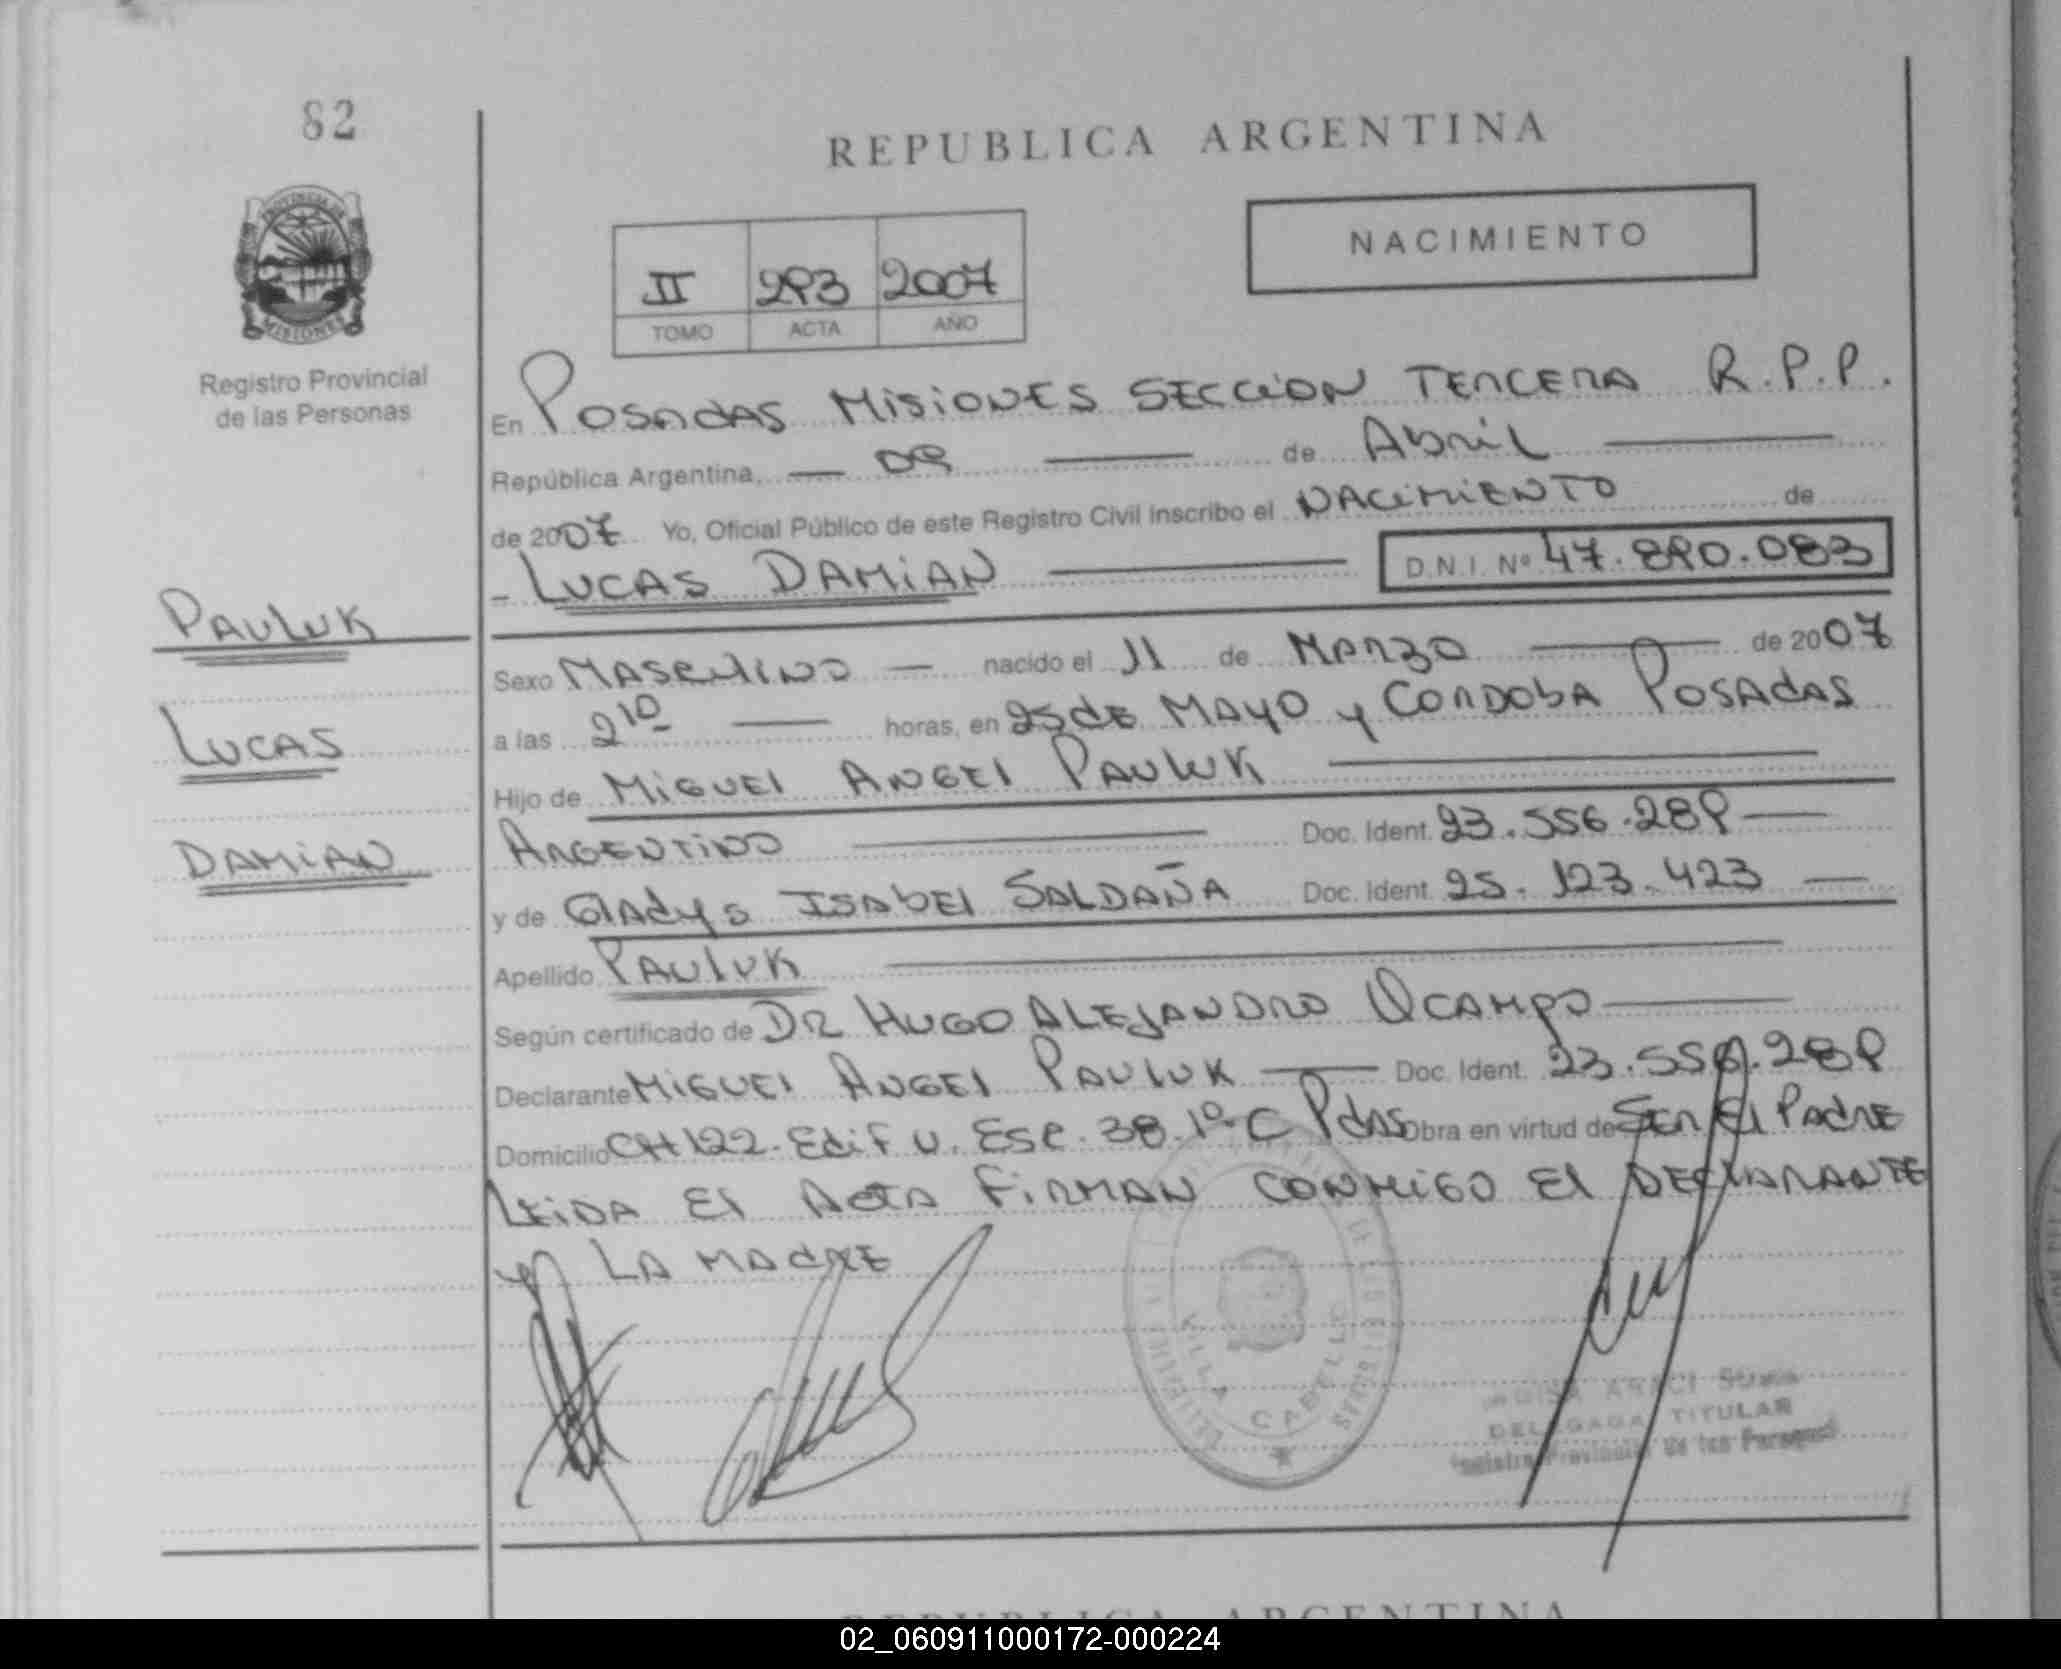 82
REPUBLICA ARGENTINA
PROVINCIA DE
MISIONES
NACIMIENTO
II 293 2007
TOMO ACTA AÑO
Registro Provincial
de las Personas
En Posadas Misiones Sección Tercera R.P.P.
República Argentina, — 09 — de Abril —
de 2007 Yo, Oficial Público de este Registro Civil inscribo el Nacimiento de
- Lucas Damian — D.N.I. Nº 47.890.083
Pauluk
Lucas
Damian
Sexo Masculino — nacido el 11 de Marzo — de 2007
a las 2 10 — horas, en 25 de Mayo y Cordoba Posadas
Hijo de Miguel Angel Pauluk —
Argentino — Doc. Ident. 23.556.289 —
y de Gladys Isabel Saldaña Doc. Ident. 25.123.423 —
Apellido Pauluk —
Según certificado de Dr Hugo Alejandro Ocampo —
Declarante Miguel Angel Pauluk — Doc. Ident. 23.556.289
Domicilio CH 122. Edif U. Esc. 38. 1º C Pdas Obra en virtud de Ser el Padre
Leida el Acta Firman conmigo el declarante
y La madre
VILLA CABELLO
ARACI
DELEGADA TITULAR
Registro Provincial de las Personas
REPUBLICA ARGENTINA
02_060911000172-000224